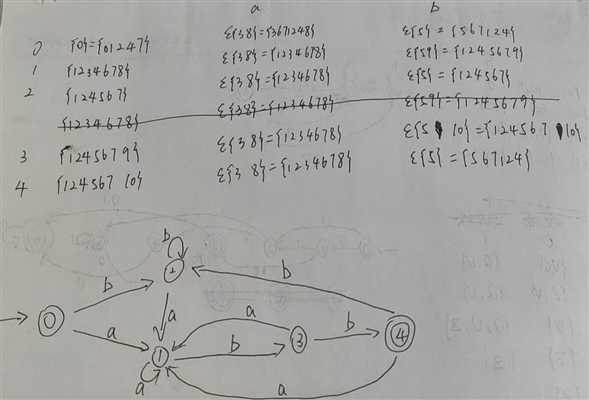 a b
0 {0}={01247} ε{38}={3671248} ε{5}={567124}
1 {1234678} ε{38}={1234678} ε{59}={1245679}
2 {124567} ε{38}={1234678} ε{5}={124567}
{1234678} ε{38}={1234678} ε{59}={1245679}
3 {1245679} ε{38}={1234678} ε{5 10}={124567 10}
4 {124567 10} ε{38}={1234678} ε{5}={567124}
b
2
b b
a
0 a a 3 b 4
1 b
a a